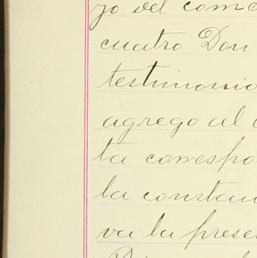 jo del come
cuatro Don
testimonio
agrego al
ta correspo
la constan
va la prese